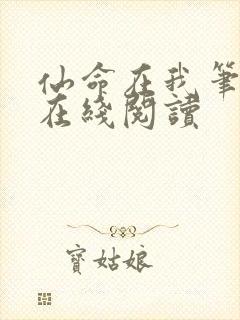 仙命在我筆
在綫閱讀
寶姑娘